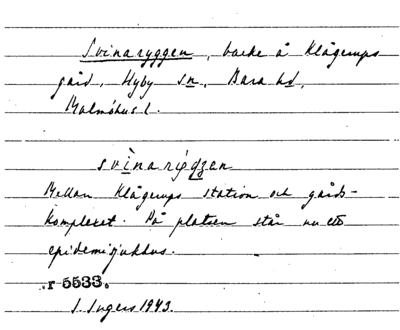 Svinaryggen, backe å Klågerups
gård, Hyby sn, Bara hd,
Malmöhus l.
svìnarigzen
Mellan Klågerups station och gårds-
komplexet. På platsen står nu ett
epidemisjukhus.
r 5533.
I. Ingers 1943.